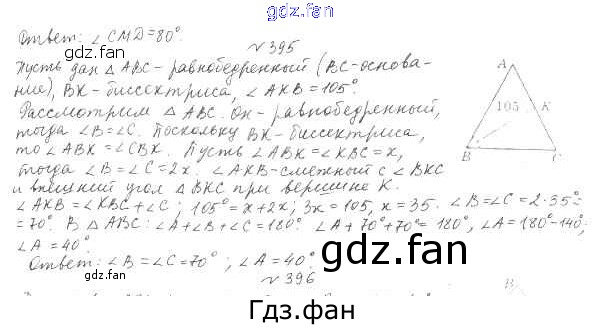 gdz.fan
Ответ: ∠CMD=80°.
№395
Пусть дан △ABC - равнобедренный (BC-основа-
ние), BK-биссектриса, ∠AKB = 105°.
Рассмотрим △ABC. Он - равнобедренный,
тогда ∠B=∠C. Поскольку BK-биссектриса,
то ∠ABK=∠CBK. Пусть ∠ABK=∠KBC=x,
тогда ∠B=∠C=2x. ∠AKB-смежный с ∠BKC
и внешний угол △BKC при вершине K.
∠AKB = ∠KBC+∠C; 105°=x+2x; 3x=105, x=35. ∠B=∠C=2·35°=
=70°. В △ABC: ∠A+∠B+∠C=180° ∠A+70°+70°=180°, ∠A=180°-140°;
∠A=40°
Ответ: ∠B=∠C=70°; ∠A=40°
№396
A
105
K
B
C
gdz.fan
gdz.fan
gdz.fan
gdz.fan
B
Гдз.фан